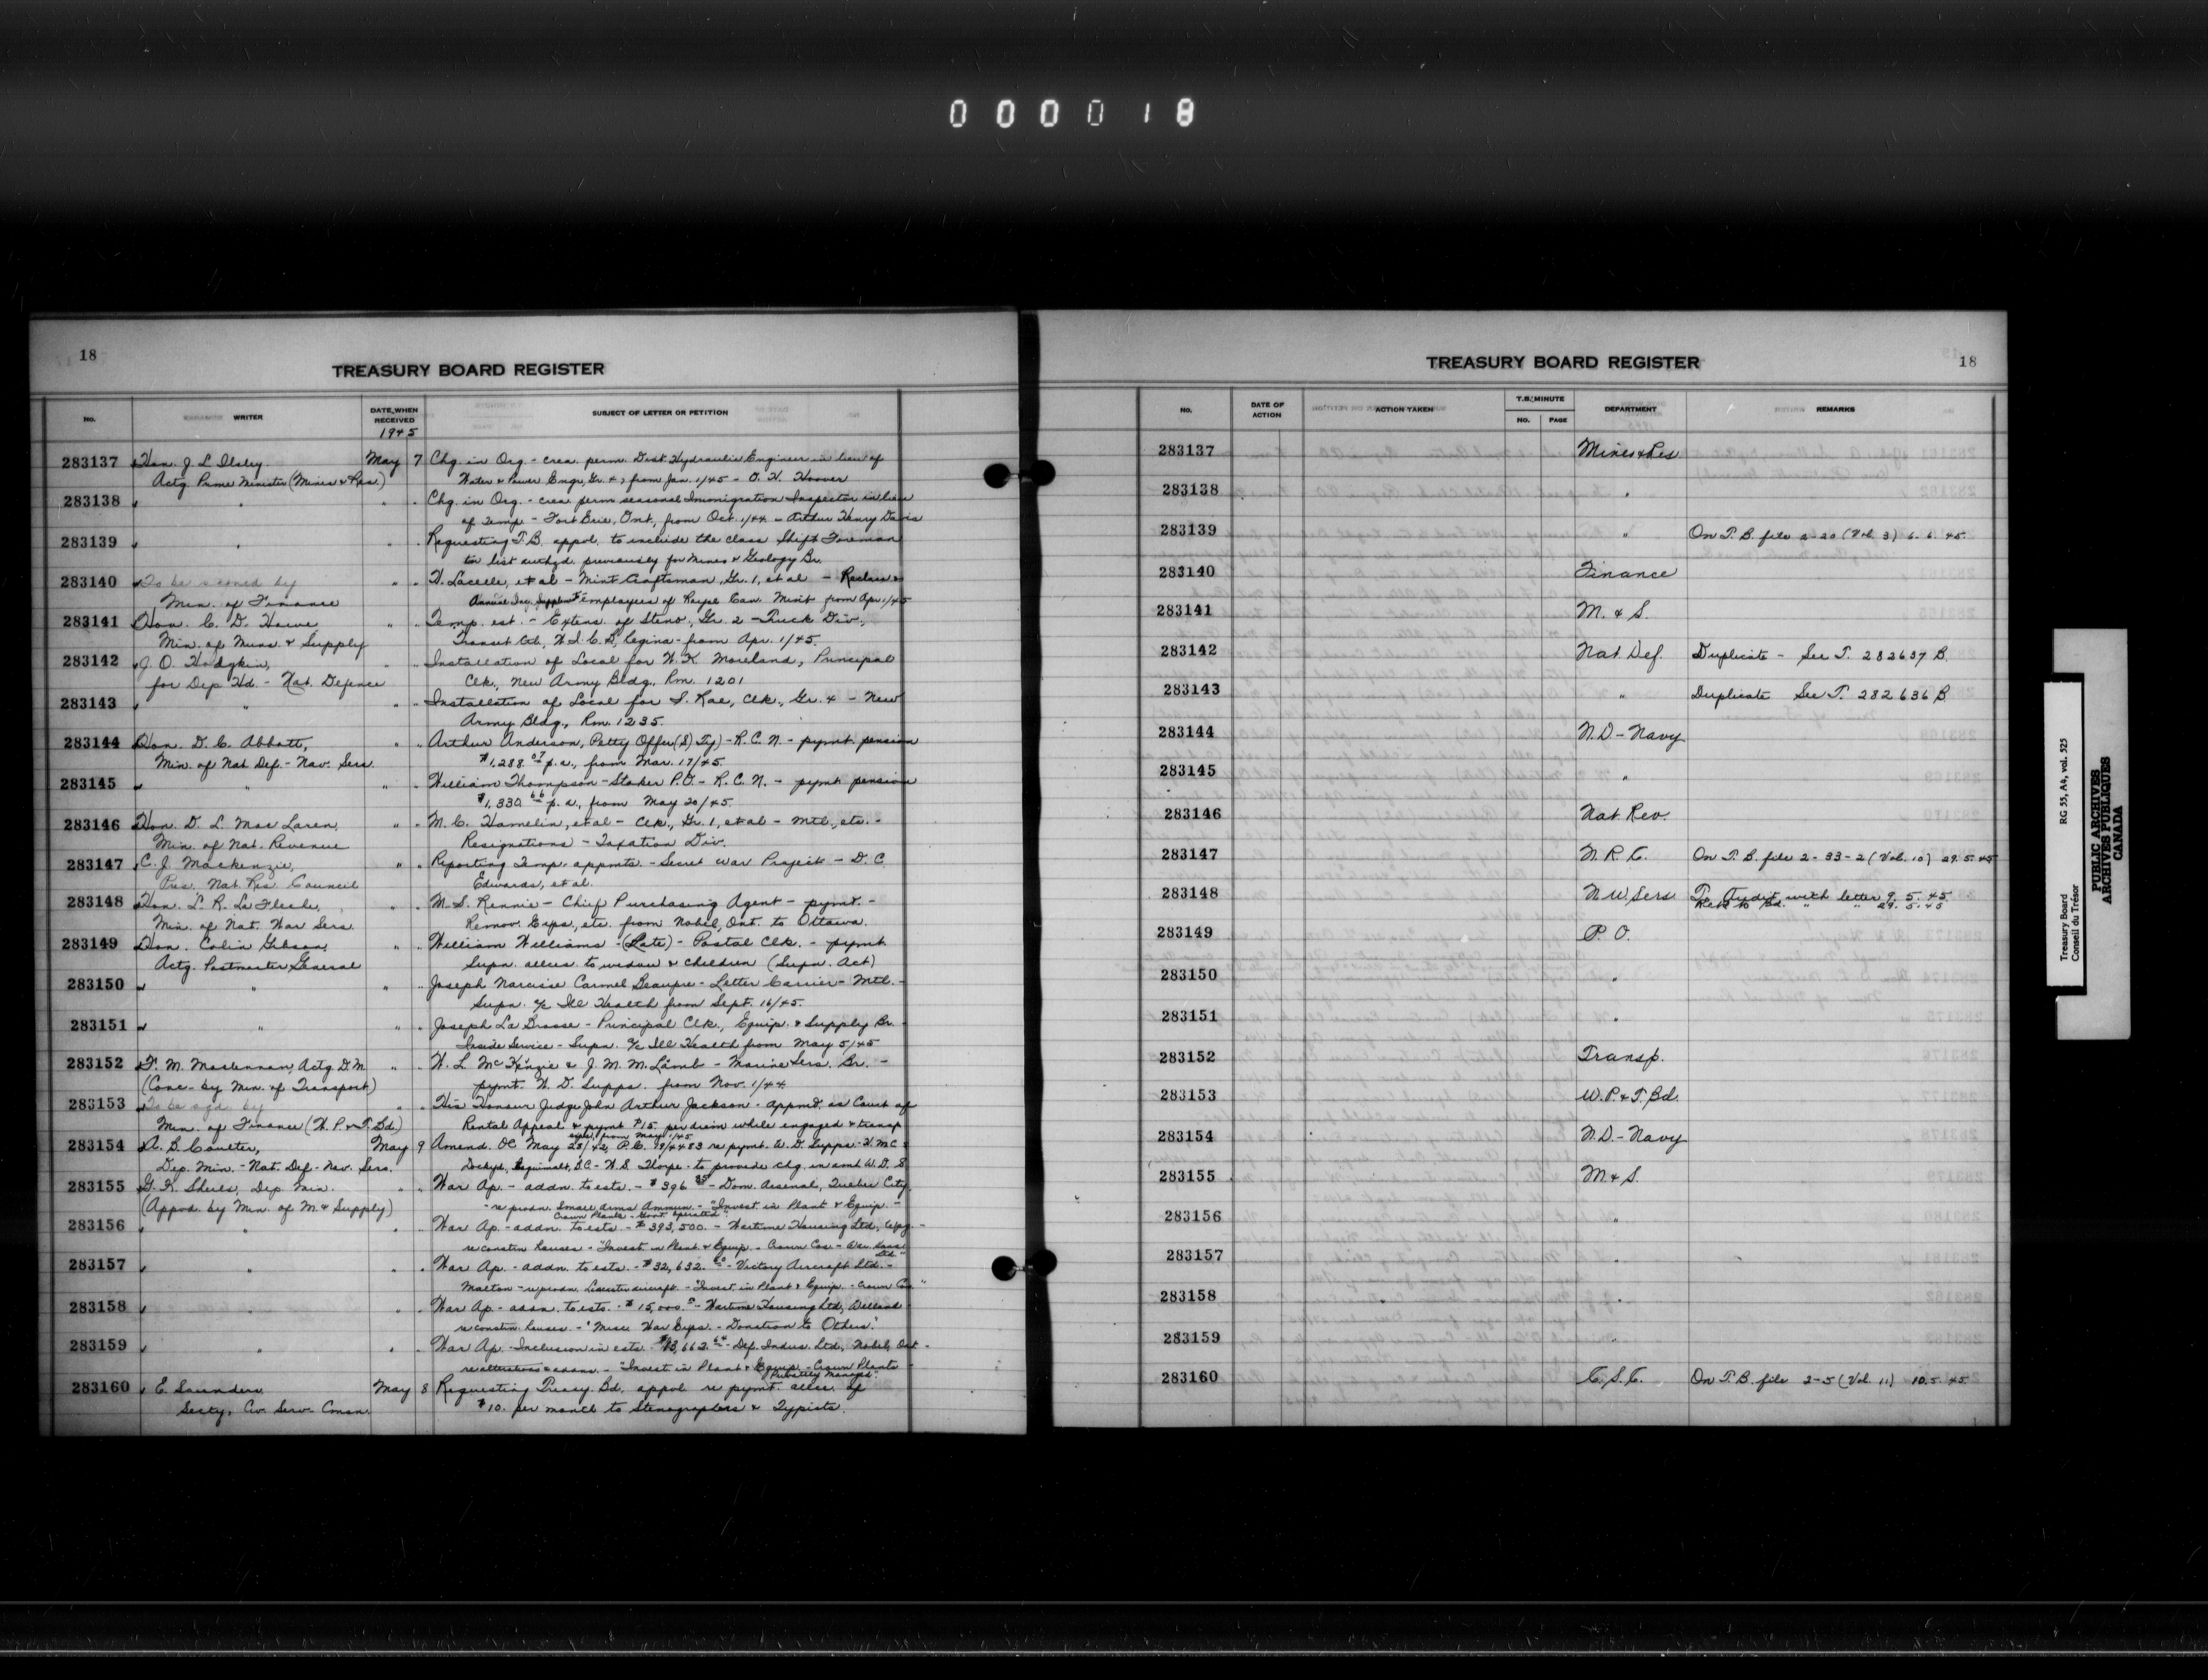 000018
18
TREASURY BOARD REGISTER
NO. WRITER DATE WHEN RECEIVED SUBJECT OF LETTER OR PETITION
1945
283137 Hon. J. L. Ilsley May 7 Chg. in Org. - crea. perm. Dist. Hydraulic Engineer in lieu of
Actg. Prime Minister (Mines & Res.) Water & Power Engr., Gr. 4, from Jan. 1/45 - O. H. Hoover
283138 " " " Chg. in Org. - crea. perm. seasonal Immigration Inspector in lieu
of Temp. - Fort Erie, Ont., from Oct. 1/44 - Arthur Henry Davis
283139 " " " Requesting T.B. appol. to include the class Shift Foreman
to list authzd. previously for Mines & Geology Br.
283140 To be signed by " " H. Lacelle, et al - Mint Craftsman, Gr. 1, et al - Reclass &
Min. of Finance employees of Royal Can. Mint from Apr. 1/45
283141 Hon. C. D. Howe " " Temp. est. - Extens. of Steno., Gr. 2 - Truck Div.,
Min. of Muns. & Supply Transit Ctl., W.I.C.B., Regina - from Apr. 1/45.
283142 J. O. Hodgkin, " " Installation of Local for W. K. Moreland, Principal
for Dep. Hd. - Nat. Defence Clk., New Army Bldg., Rm. 1201
283143 " " " Installation of Local for S. Rae, Clk., Gr. 4 - New
Army Bldg., Rm. 1235.
283144 Hon. D. C. Abbott, " " Arthur Anderson, Petty Offcr (S) Ty) - R.C.N. - pymt. pension
Min. of Nat. Def. - Nav. Sers. $1,288.07 p.a., from Mar. 17/45.
283145 " " " William Thompson - Stoker P.O. - R.C.N. - pymt. pension
$1,330.66 p.a., from May 20/45.
283146 Hon. D. L. MacLaren, " " M. C. Hamelin, et al - Clk., Gr. 1, et al - Mtl., etc. -
Min. of Nat. Revenue Resignations - Taxation Div.
283147 C. J. Mackenzie, " " Reporting Temp. appmts. - Secret War Projects - D. C.
Pres. Nat. Res. Council Edwards, et al.
283148 Hon. L. R. LaFleche, " " M. S. Rennie - Chief Purchasing Agent - pymt. -
Min. of Nat. War Sers. Remov. Exps., etc. from Nobel, Ont. to Ottawa.
283149 Hon. Colin Gibson, " " William Williams - (Late) - Postal Clk. - pymt.
Actg. Postmaster General Supn. allces. to widow & children (Supn. Act)
283150 " " " Joseph Narcisse Carmel Beaupre - Letter Carrier - Mtl. -
Supn. a/c Ill Health from Sept. 16/45.
283151 " " " Joseph La Brosse - Principal Clk., Equip. & Supply Br.
Inside Service - Supn. a/c Ill Health from May 5/45
283152 F. M. Maclennan, Actg. D.M. " " W. L. McKenzie & J. M. M. Lamb - Marine Sers. Br. -
(Conc. by Min. of Transport) pymt. W. D. Supps. from Nov. 1/44
283153 To be sgd. by " " His Honour Judge John Arthur Jackson - appmt. as Court of
Min. of Finance (W. P. & T. Bd.) Rental Appeal & pymt. $15. per diem while engaged & transp.
exps. from May 1/45
283154 A. B. Coulter, May 9 Amend. OC May 28/42, P.C. 19/4483 re pymt. W. D. Supps. - H.M.C.
Dep. Min. - Nat. Def. - Nav. Sers. Dockyd., Esquimalt, B.C. - W. S. Thorpe - to provide chg. in amt. W. D. S.
283155 G. K. Sheils, Dep. Min. " " War Ap. - addn. to ests. - $396.35 - Dom. Arsenal, Quebec City
(Appvd. by Min. of M. & Supply) - re prodn. Small Arms Ammun. - "Invest. in Plant & Equip. -
Crown Plants - Govt. Operated"
283156 " " " War Ap. - addn. to ests. - $393,500. - Wartime Housing Ltd., Wpg. -
re constrn. houses - "Invest. in Plant & Equip. - Crown Cos. - War. Hous.
Ltd."
283157 " " " War Ap. - addn. to ests. - $32,632.60 - Victory Aircraft Ltd. -
Malton - re prodn. Lincoln aircraft - "Invest. in Plant & Equip. - Crown Cos."
283158 " " " War Ap. - addn. to ests. - $15,000. - Wartime Housing Ltd., Welland
re constrn. houses - "Misc. War Exps. - Donation to Others."
283159 " " " War Ap. - Inclusion in ests. - $13,662.64 - Def. Indus. Ltd., Nobel, Ont. -
re alterations & addns. - "Invest. in Plant & Equip. - Crown Plants -
Privately Managed."
283160 E. Saunders May 8 Requesting Treasy. Bd. appol. re pymt. allce. of
Secty., Civ. Serv. Comsn. $10. per month to Stenographers & Typists.
TREASURY BOARD REGISTER
18
NO. DATE OF ACTION ACTION TAKEN T.B. MINUTE NO. PAGE DEPARTMENT REMARKS
283137 Mines & Res.
283138 "
283139 " On T.B. file 2-20 (Vol. 3) 6. 6. 45.
283140 Finance
283141 M. & S.
283142 Nat. Def. Duplicate - See T. 282637 B.
283143 " Duplicate See T. 282636 B
283144 N.D. - Navy
283145 "
283146 Nat. Rev.
283147 N. R. C. On T.B. file 2-33-2 (Vol. 10) 29. 5. 45
283148 N.W. Sers. To Audit with letter 9. 5. 45.
Retd. to Bd. " " 29. 5. 45
283149 P. O.
283150 "
283151 "
283152 Transp.
283153 W. P. & T. Bd.
283154 N.D. - Navy
283155 M. & S.
283156 "
283157 "
283158 "
283159 "
283160 C. S. C. On T.B. file 2-5 (Vol. 11) 10. 5. 45.
Treasury Board RG 55, A4, vol. 525
Conseil du Trésor
PUBLIC ARCHIVES
ARCHIVES PUBLIQUES
CANADA